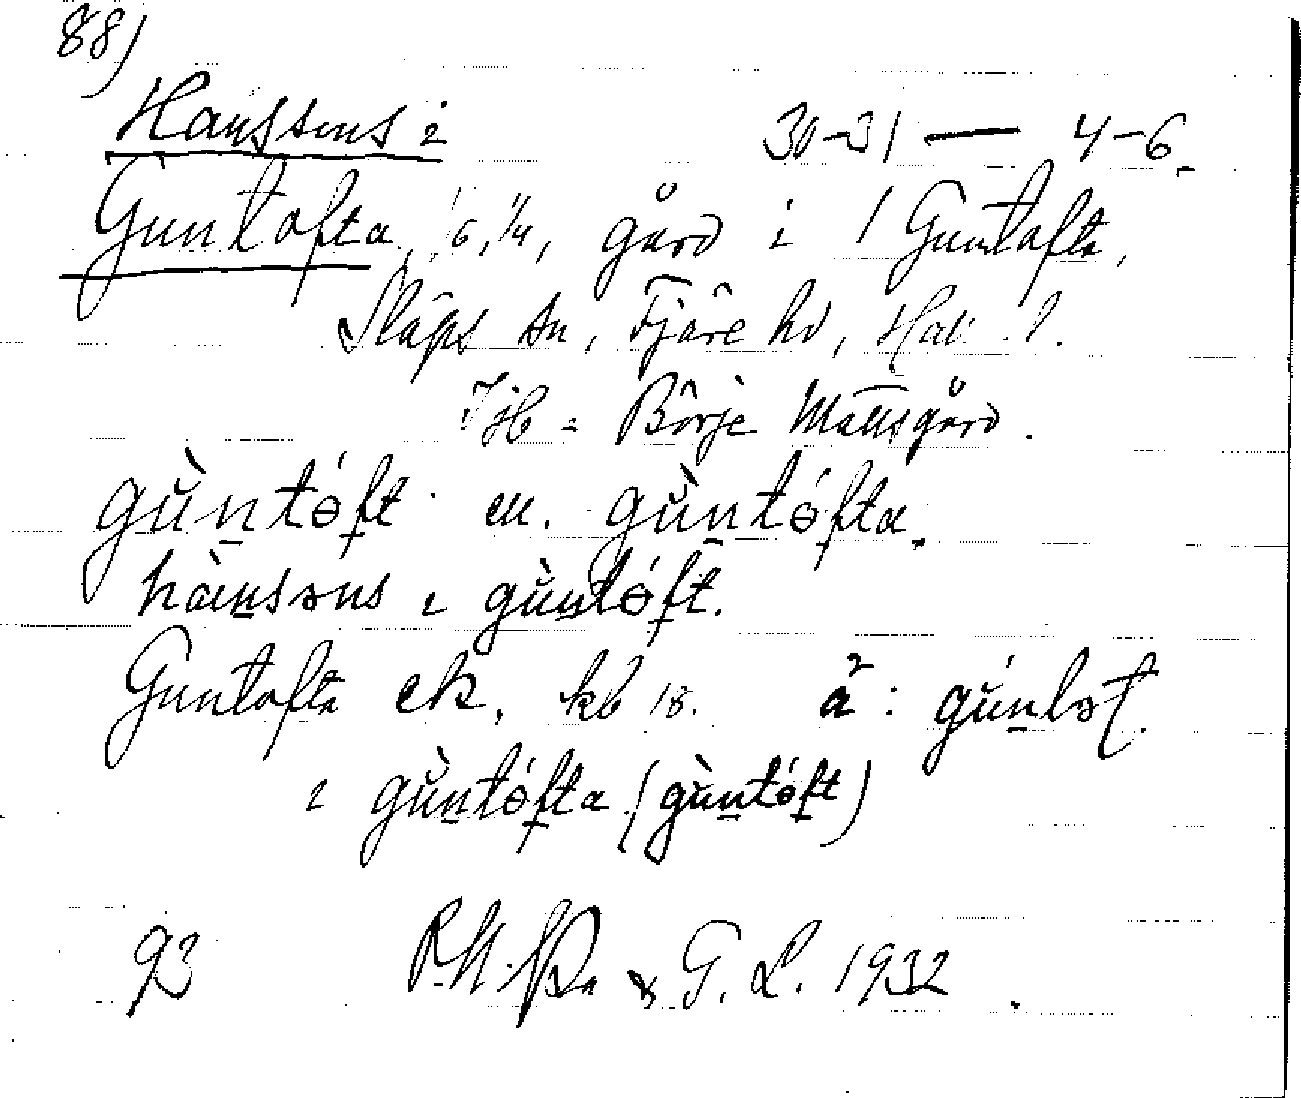 88)
Hanssons i 30-31 — 4-6.
Guntofta, 1/6, 1/4, gård i 1 Guntofta,
Släps sn, Fjäre hd, Hall. l.
Börje Mattsgård.
gùntóft en. gùntófta.
hànsəns ɩ gùntóft.
Guntofta ek, kb 18. ä : gúnləf.
ɩ gùntófta (gùntóft)
93 & G. L. 1932